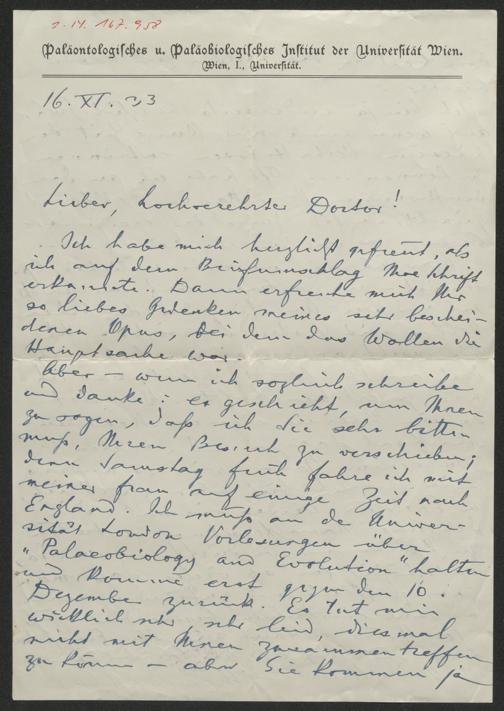 I.N. 167.958
Paläontologisches u. Paläobiologisches Institut der Universität Wien.
Wien, I., Universität.
16. XI. 33
Lieber, hochverehrter Doctor!
Ich habe mich herzlichst gefreut, als
ich auf dem Briefumschlag Ihre Schrift
erkannte. Dann erfreute mich Ihr
so liebes Gedenken meines sehr beschei-
denen Opus, bei dem das Wollen die
Hauptsache war.
Aber – wenn ich sogleich schreibe
und danke: es geschieht, um Ihnen
zu sagen, daß ich Sie sehr bitten
muß, Ihren Besuch zu verschieben;
denn Samstag früh fahre ich mit
meiner Frau auf einige Zeit nach
England. Ich muß an der Univer-
sität London Vorlesungen über
"Palaeobiology and Evolution" halten
und komme erst gegen den 10.
Dezember zurück. Es tut mir
wirklich sehr, sehr leid, diesmal
nicht mit Ihnen zusammentreffen
zu können – aber Sie kommen ja